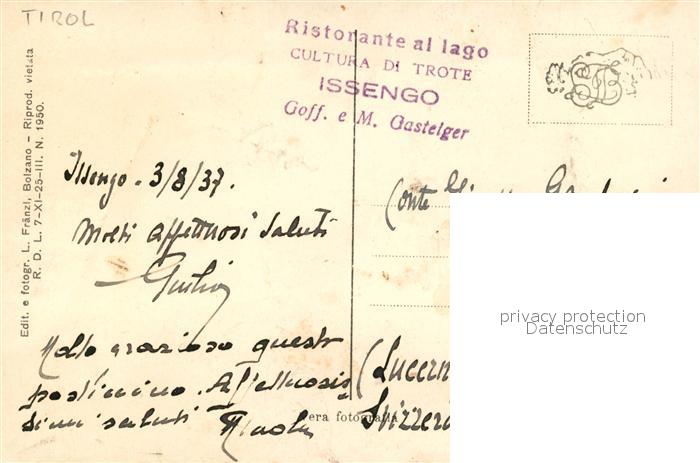 TIROL
Ristorante al lago
CULTURA DI TROTE
ISSENGO
Goff. e M. Gasteiger
Edit. e fotogr. L. Fränzl, Bolzano – Riprod. vietata
R. D. L. 7-XI-25-III. N. 1950.
Issengo - 3/8/37.
Molti affettuosi saluti
Giulio
Molto grazioso questo
postino. Affettuosis
simi saluti
Conte
(Lucern
Svizzer
vera fotografia
privacy protection
Datenschutz